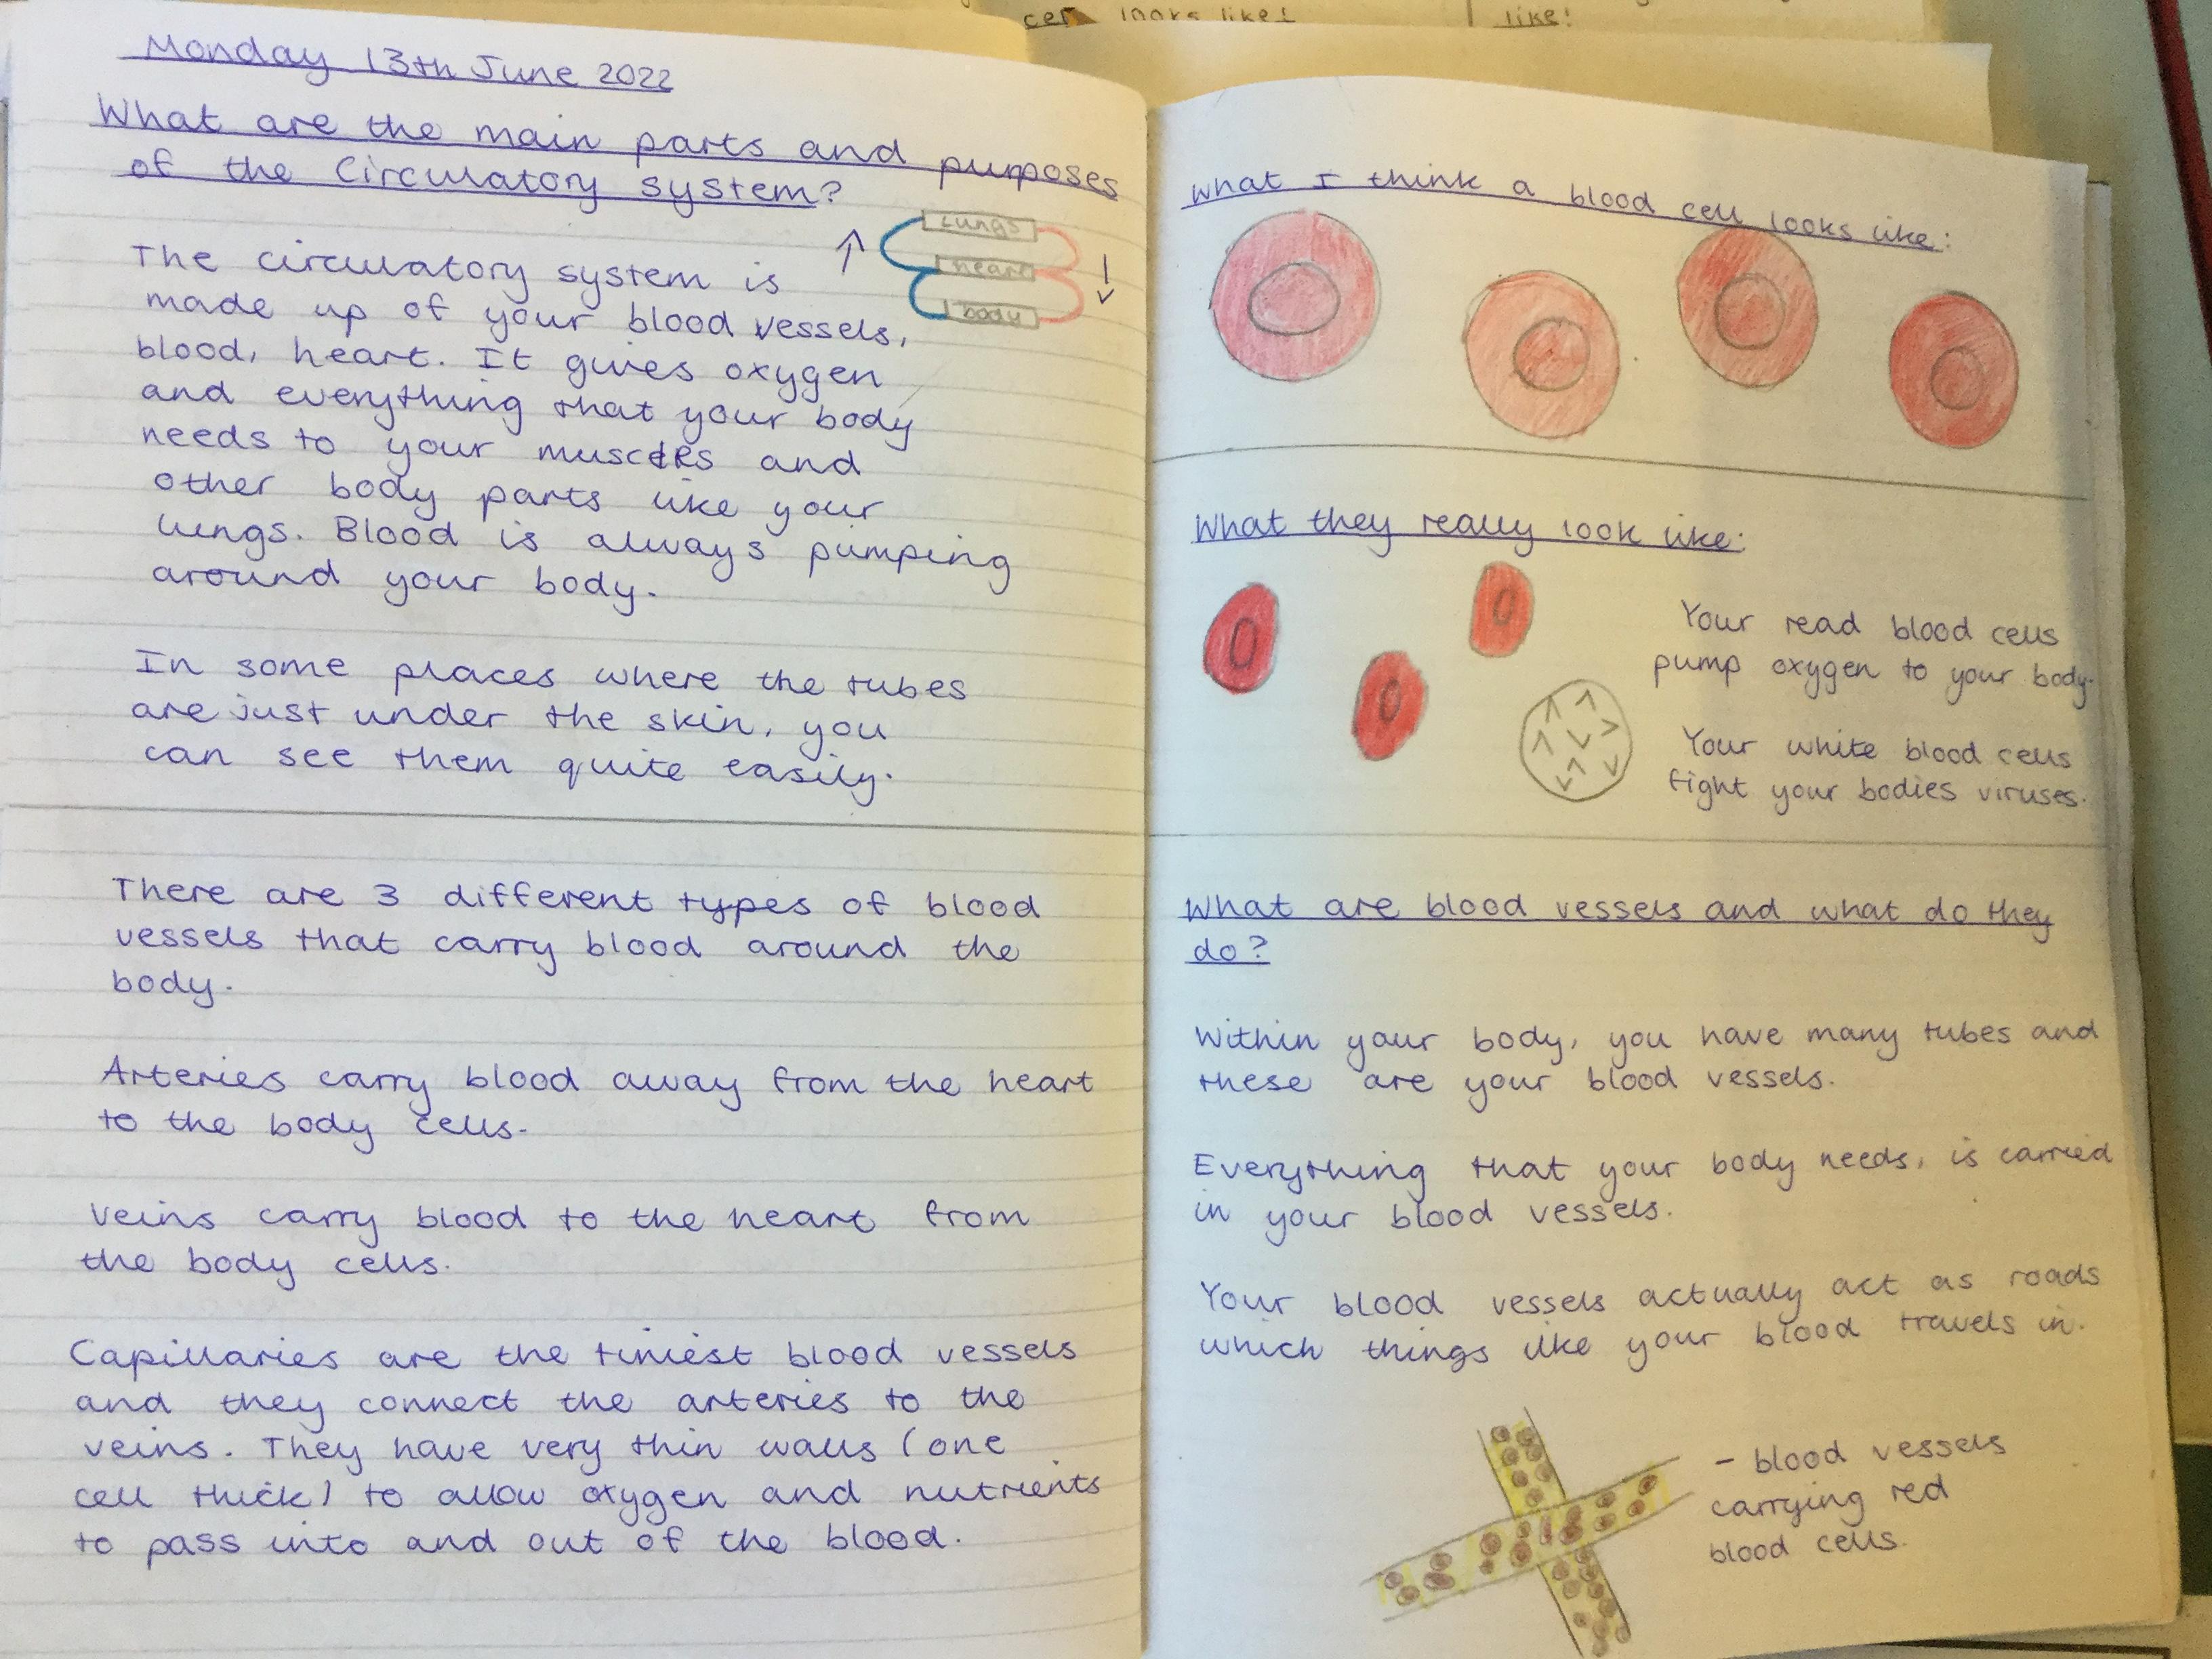 cer looks like!
like!
Monday 13th June 2022
What are the main parts and purposes
of the Circulatory system?
lungs
heart
body
The circulatory system is
made up of your blood vessels,
blood, heart. It gives oxygen
and everything that your body
needs to your muscles and
other body parts like your
lungs. Blood is always pumping
around your body.
In some places where the tubes
are just under the skin, you
can see them quite easily.
There are 3 different types of blood
vessels that carry blood around the
body.
Arteries carry blood away from the heart
to the body cells.
Veins carry blood to the heart from
the body cells.
Capillaries are the tiniest blood vessels
and they connect the arteries to the
veins. They have very thin walls (one
cell thick) to allow oxygen and nutrients
to pass into and out of the blood.
What I think a blood cell looks like:
What they really look like:
Your read blood cells
pump oxygen to your body.
Your white blood cells
fight your bodies viruses.
What are blood vessels and what do they
do?
Within your body, you have many tubes and
these are your blood vessels.
Everything that your body needs, is carried
in your blood vessels.
Your blood vessels actually act as roads
which things like your blood travels in.
- blood vessels
carrying red
blood cells.